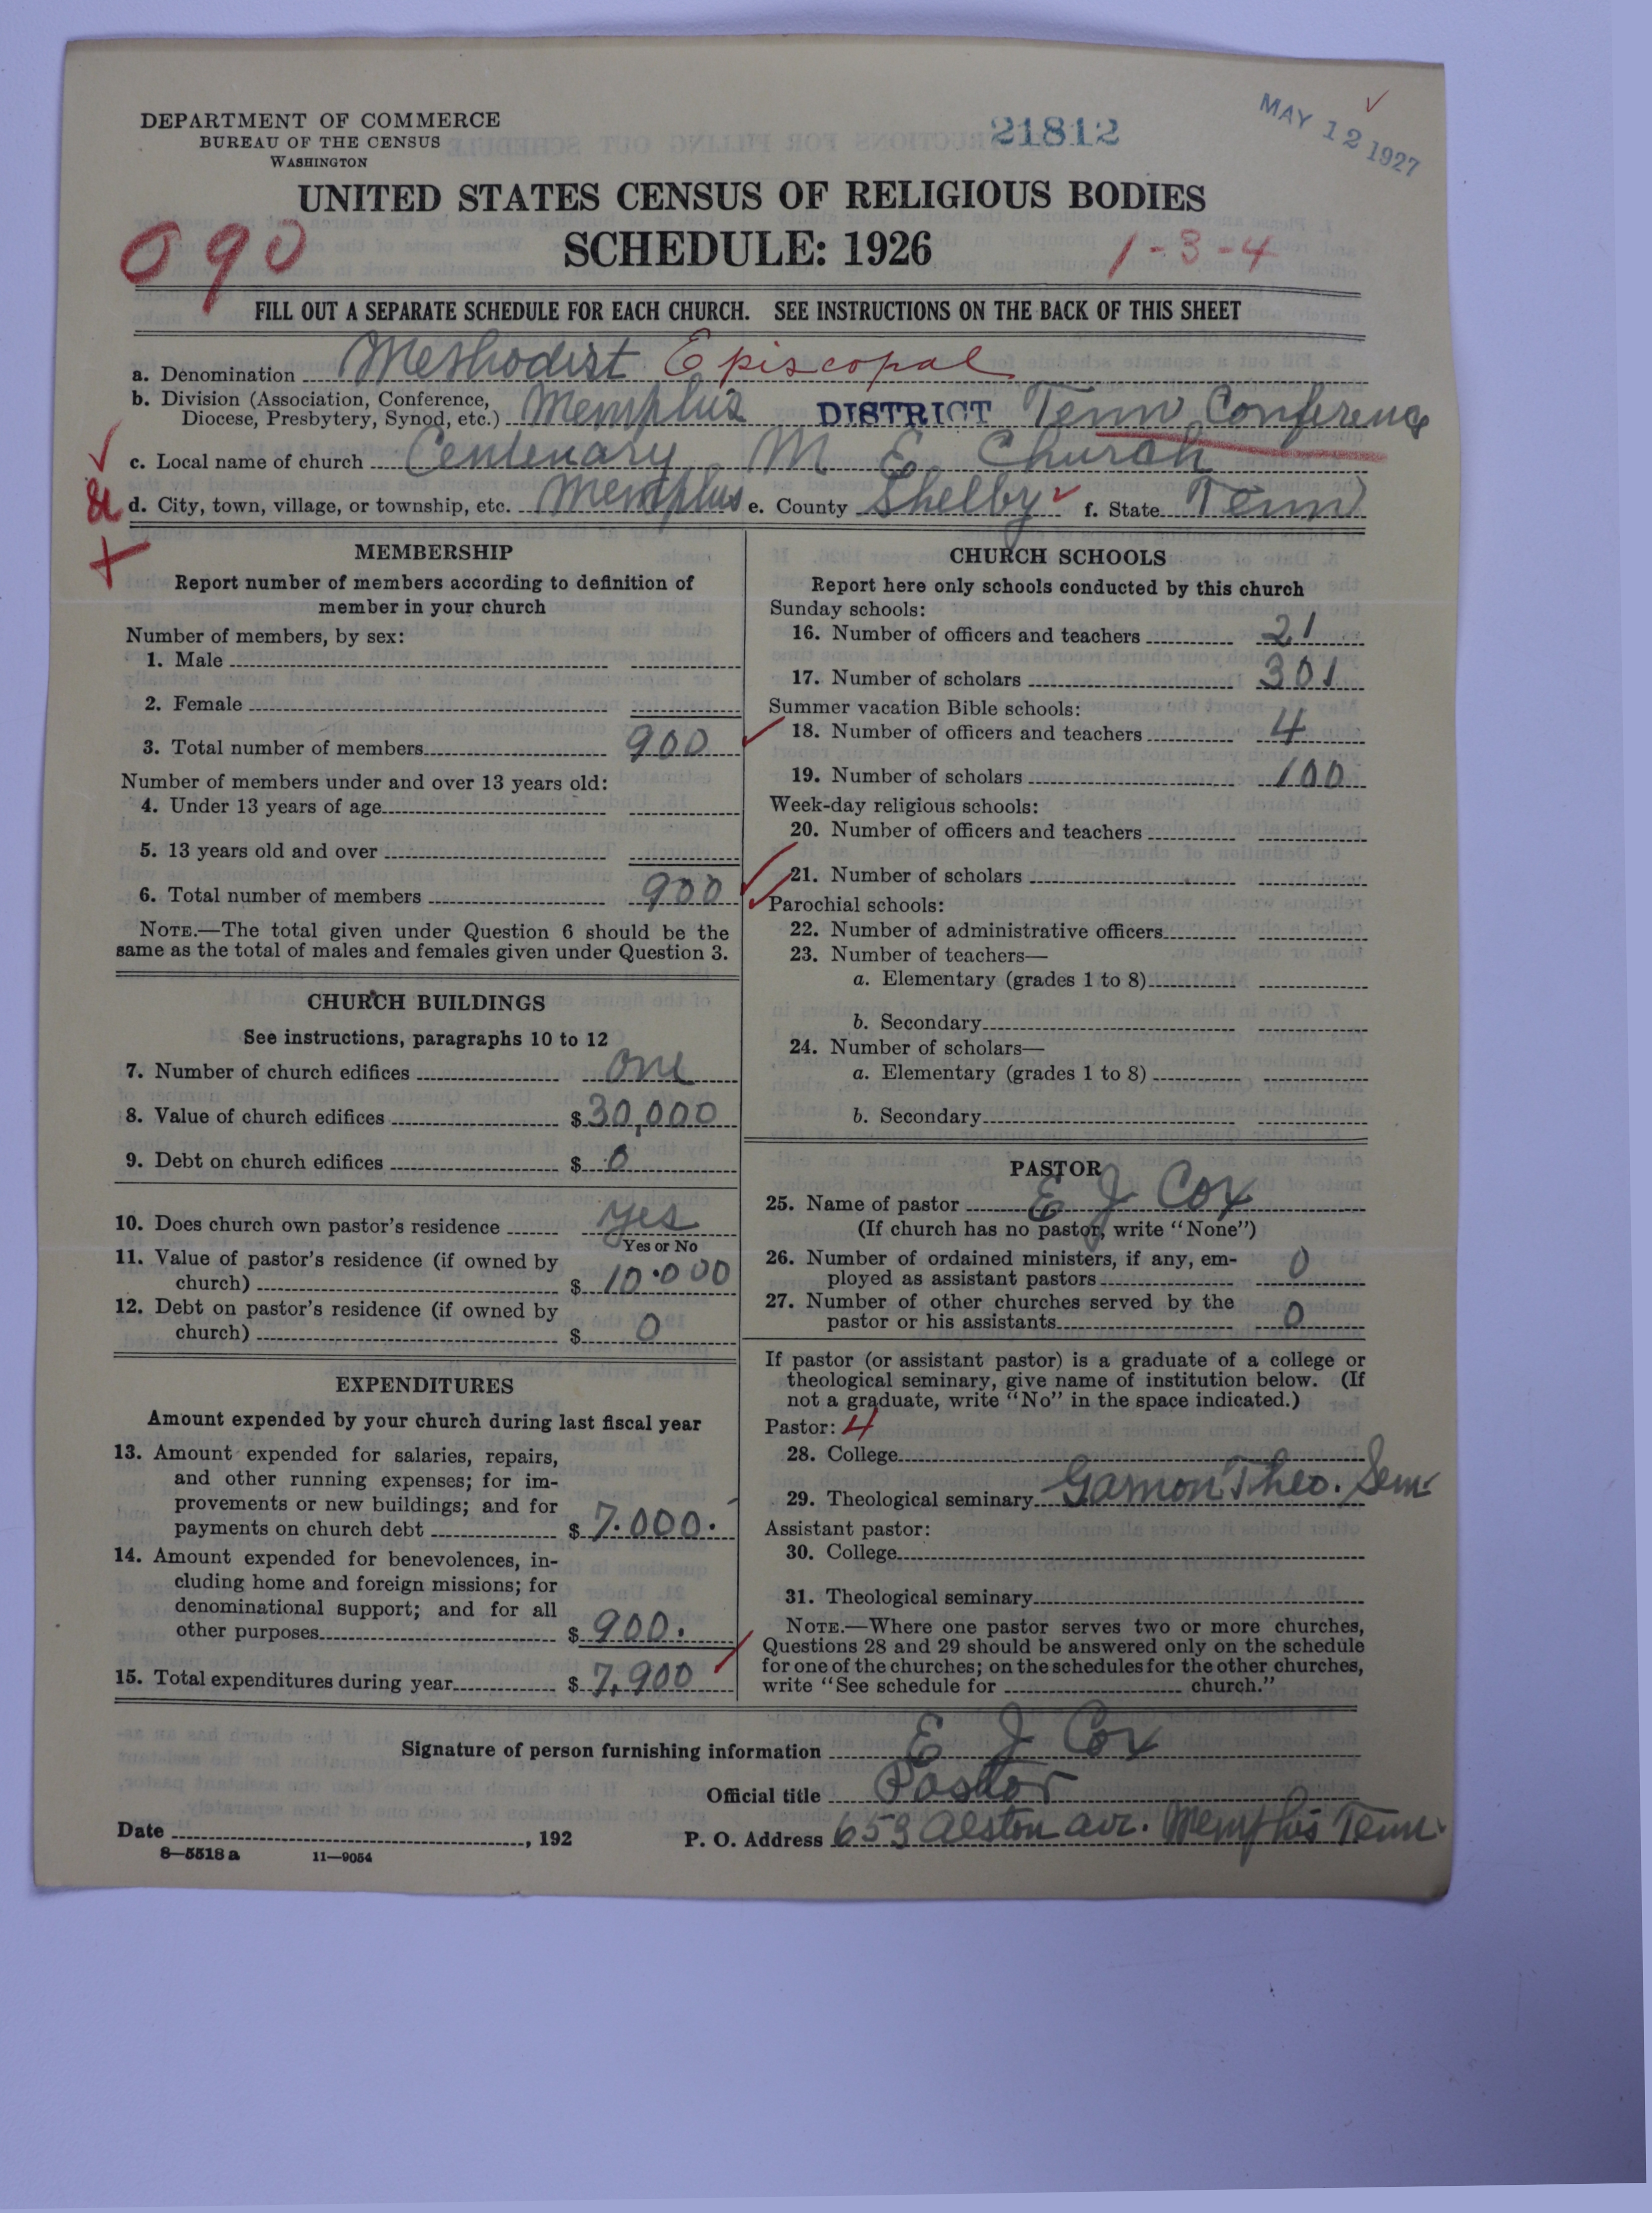 DEPARTMENT OF COMMERCE
BUREAU OF THE CENSUS
WASHINGTON
21812
MAY 12 1927
UNITED STATES CENSUS OF RELIGIOUS BODIES
SCHEDULE: 1926
090
1-3-4
FILL OUT A SEPARATE SCHEDULE FOR EACH CHURCH. SEE INSTRUCTIONS ON THE BACK OF THIS SHEET
a. Denomination Methodist Episcopal
b. Division (Association, Conference,
Diocese, Presbytery, Synod, etc.) Memphis DISTRICT Tenn Conference
c. Local name of church Centenary M E Church
d. City, town, village, or township, etc. Memphis e. County Shelby f. State Tenn
MEMBERSHIP
Report number of members according to definition of
member in your church
Number of members, by sex:
1. Male
2. Female
3. Total number of members 900
Number of members under and over 13 years old:
4. Under 13 years of age
5. 13 years old and over
6. Total number of members 900
NOTE.—The total given under Question 6 should be the
same as the total of males and females given under Question 3.
CHURCH BUILDINGS
See instructions, paragraphs 10 to 12
7. Number of church edifices one
8. Value of church edifices $ 30,000
9. Debt on church edifices $ 0
10. Does church own pastor's residence yes
Yes or No
11. Value of pastor's residence (if owned by
church) $ 10.000
12. Debt on pastor's residence (if owned by
church) $ 0
EXPENDITURES
Amount expended by your church during last fiscal year
13. Amount expended for salaries, repairs,
and other running expenses; for im-
provements or new buildings; and for
payments on church debt $ 7.000.
14. Amount expended for benevolences, in-
cluding home and foreign missions; for
denominational support; and for all
other purposes $ 900.
15. Total expenditures during year $ 7,900
CHURCH SCHOOLS
Report here only schools conducted by this church
Sunday schools:
16. Number of officers and teachers 21
17. Number of scholars 301
Summer vacation Bible schools:
18. Number of officers and teachers 4
19. Number of scholars 100
Week-day religious schools:
20. Number of officers and teachers
21. Number of scholars
Parochial schools:
22. Number of administrative officers
23. Number of teachers—
a. Elementary (grades 1 to 8)
b. Secondary
24. Number of scholars—
a. Elementary (grades 1 to 8)
b. Secondary
PASTOR
25. Name of pastor E J Cox
(If church has no pastor, write "None")
26. Number of ordained ministers, if any, em-
ployed as assistant pastors 0
27. Number of other churches served by the
pastor or his assistants 0
If pastor (or assistant pastor) is a graduate of a college or
theological seminary, give name of institution below. (If
not a graduate, write "No" in the space indicated.)
Pastor: 4
28. College
29. Theological seminary Gamon Theo. Sem.
Assistant pastor:
30. College
31. Theological seminary
NOTE.—Where one pastor serves two or more churches,
Questions 28 and 29 should be answered only on the schedule
for one of the churches; on the schedules for the other churches,
write "See schedule for church."
Signature of person furnishing information E J Cox
Official title Pastor
Date , 192
P. O. Address 659 Alston ave. Memphis Tenn.
8—5518 a 11—9054